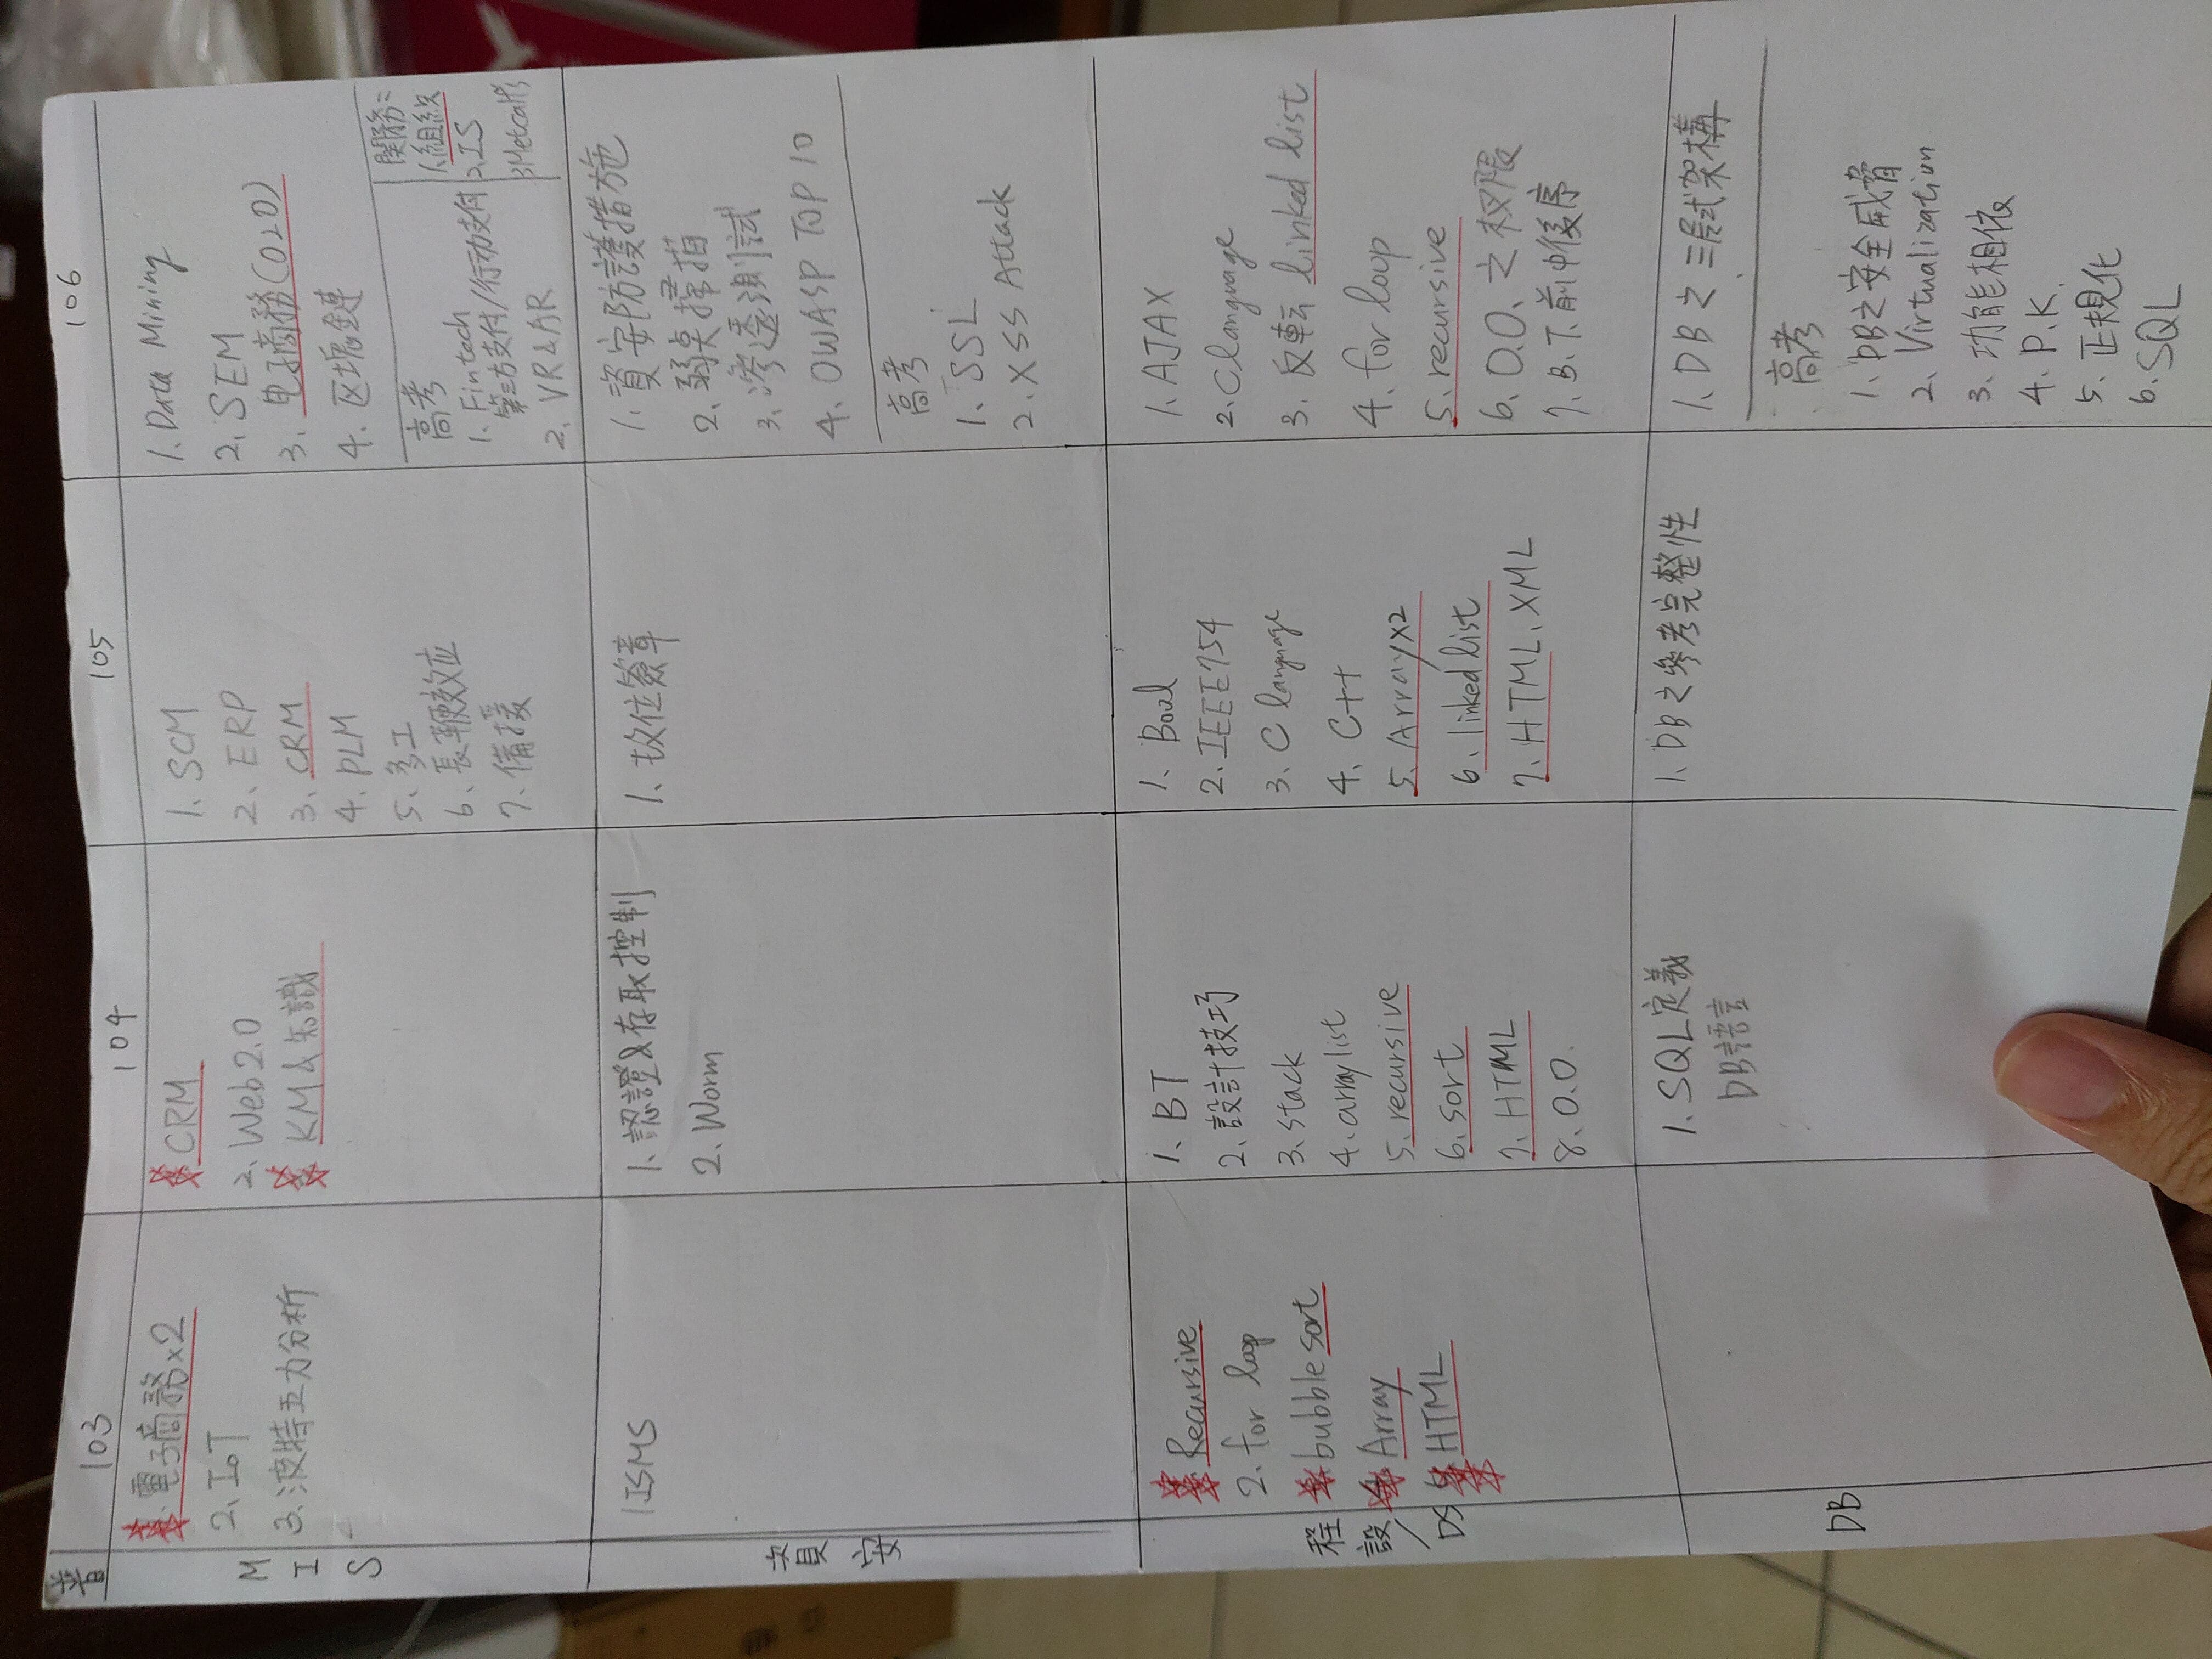 普
103
104
105
106
MIS
1. 電子商務x2
2. IoT
3. 波特五力分析
1. CRM
2. Web2.0
3. KM & 知識
1. SCM
2. ERP
3. CRM
4. PLM
5. 多工
6. 長鞭效应
7. 備援
1. Data Mining
2. SEM
3. 电子商務(O2O)
4. 区塊鏈
高考
1. Fintech
第三方支付/行动支付
2. VR&AR
関務:
1. 組織
2. IS
3 Metcalf's
資安
1 ISMS
1. 認證&存取控制
2. Worm
1. 数位簽章
1. 資安防護措施
2. 弱点掃描
3. 滲透測試
4. OWASP TOP 10
高考
1. SSL
2. XSS Attack
程設/DS
1. Recursive
2. for loop
3. bubble sort
4. Array
5. HTML
1. BT
2. 設計技巧
3. stack
4. array list
5. recursive
6. sort
7. HTML
8. O.O.
1. Bool
2. IEEE754
3. C language
4. C++
5. Arrayx2
6. linked list
7. HTML、XML
1. AJAX
2. C language
3. 反転 linked list
4. for loop
5. recursive
6. O.O. 之权限
7. B.T. 前中後序
DB
1. SQL定義
DB語言
1. DB之參考完整性
1. DB之三層式架構
高考
1. DB之安全威脅
2. Virtualization
3. 功能相依
4. P.K.
5. 正規化
6. SQL